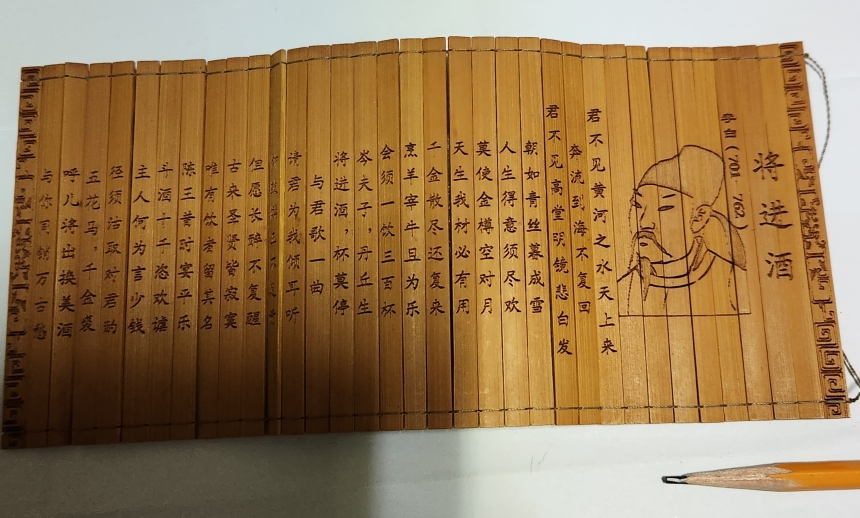 将进酒
李白（701-762）
君不见黄河之水天上来
奔流到海不复回
君不见高堂明镜悲白发
朝如青丝暮成雪
人生得意须尽欢
莫使金樽空对月
天生我材必有用
千金散尽还复来
烹羊宰牛且为乐
会须一饮三百杯
岑夫子，丹丘生
将进酒，杯莫停
与君歌一曲
请君为我倾耳听
但愿长醉不复醒
古来圣贤皆寂寞
唯有饮者留其名
陈王昔时宴平乐
斗酒十千恣欢谑
主人何为言少钱
径须沽取对君酌
五花马，千金裘
呼儿将出换美酒
与你同销万古愁